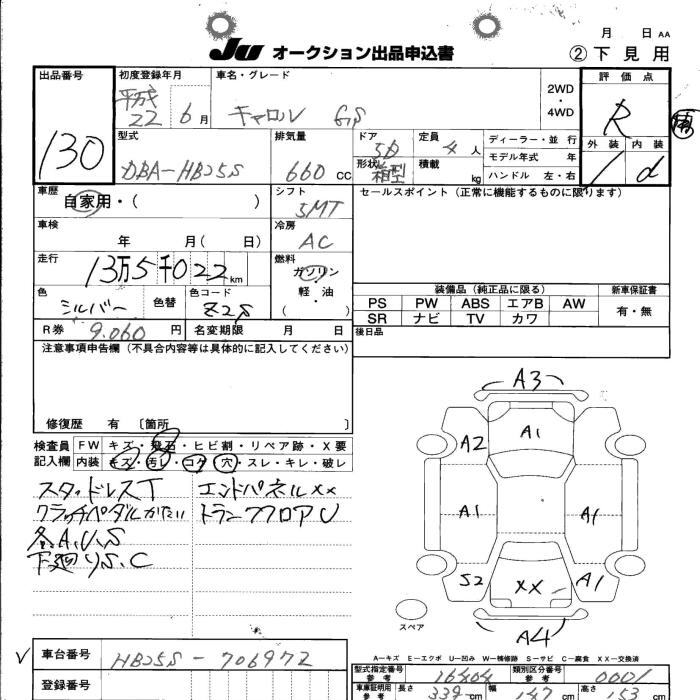 月 日 AA
JU オークション出品申込書 ②下見用
出品番号
130
初度登録年月
平成
22 6月
車名・グレード
キャロル GS
2WD
・
4WD
評価点
R
外装 内装
1 d
型式
DBA-HB25S
排気量
660 CC
ドア
5D
定員
4人
形状
箱型
積載
kg
ディーラー・並行
モデル年式 年
ハンドル 左・右
車歴
自家用・( )
シフト
5MT
セールスポイント(正常に機能するものに限ります)
車検
年 月( 日)
冷房
AC
走行
13万5千022km
燃料
ガソリン
軽・油
( )
色
シルバー
色替
色コード
Z2S
装備品(純正品に限る)
PS PW ABS エアB AW
SR ナビ TV カワ
新車保証書
有・無
R券 9.060円
名変期限 月 日
後日品
注意事項申告欄(不具合内容等は具体的に記入してください)
修復歴 有 〔箇所 〕
検査員記入欄
FW キズ・飛石・ヒビ割・リペア跡・X要
内装 キズ・汚レ・コゲ・穴・スレ・キレ・破レ
スタッドレスT
クラッチペダルかたい
各A.U.S
下廻りS.C
エンドパネルXX
トランクフロアU
A3
A2
A1
A1
A1
S2
XX
A1
A4
スペア
A-キズ E-エクボ U-凹み W-補修跡 S-サビ C-腐食 XX-交換済
車台番号
HB25S-706972
登録番号
型式指定番号
参考
16404
類別区分番号
参考
0001
車庫証明用
参考
長さ
339cm
幅
147
高さ
153